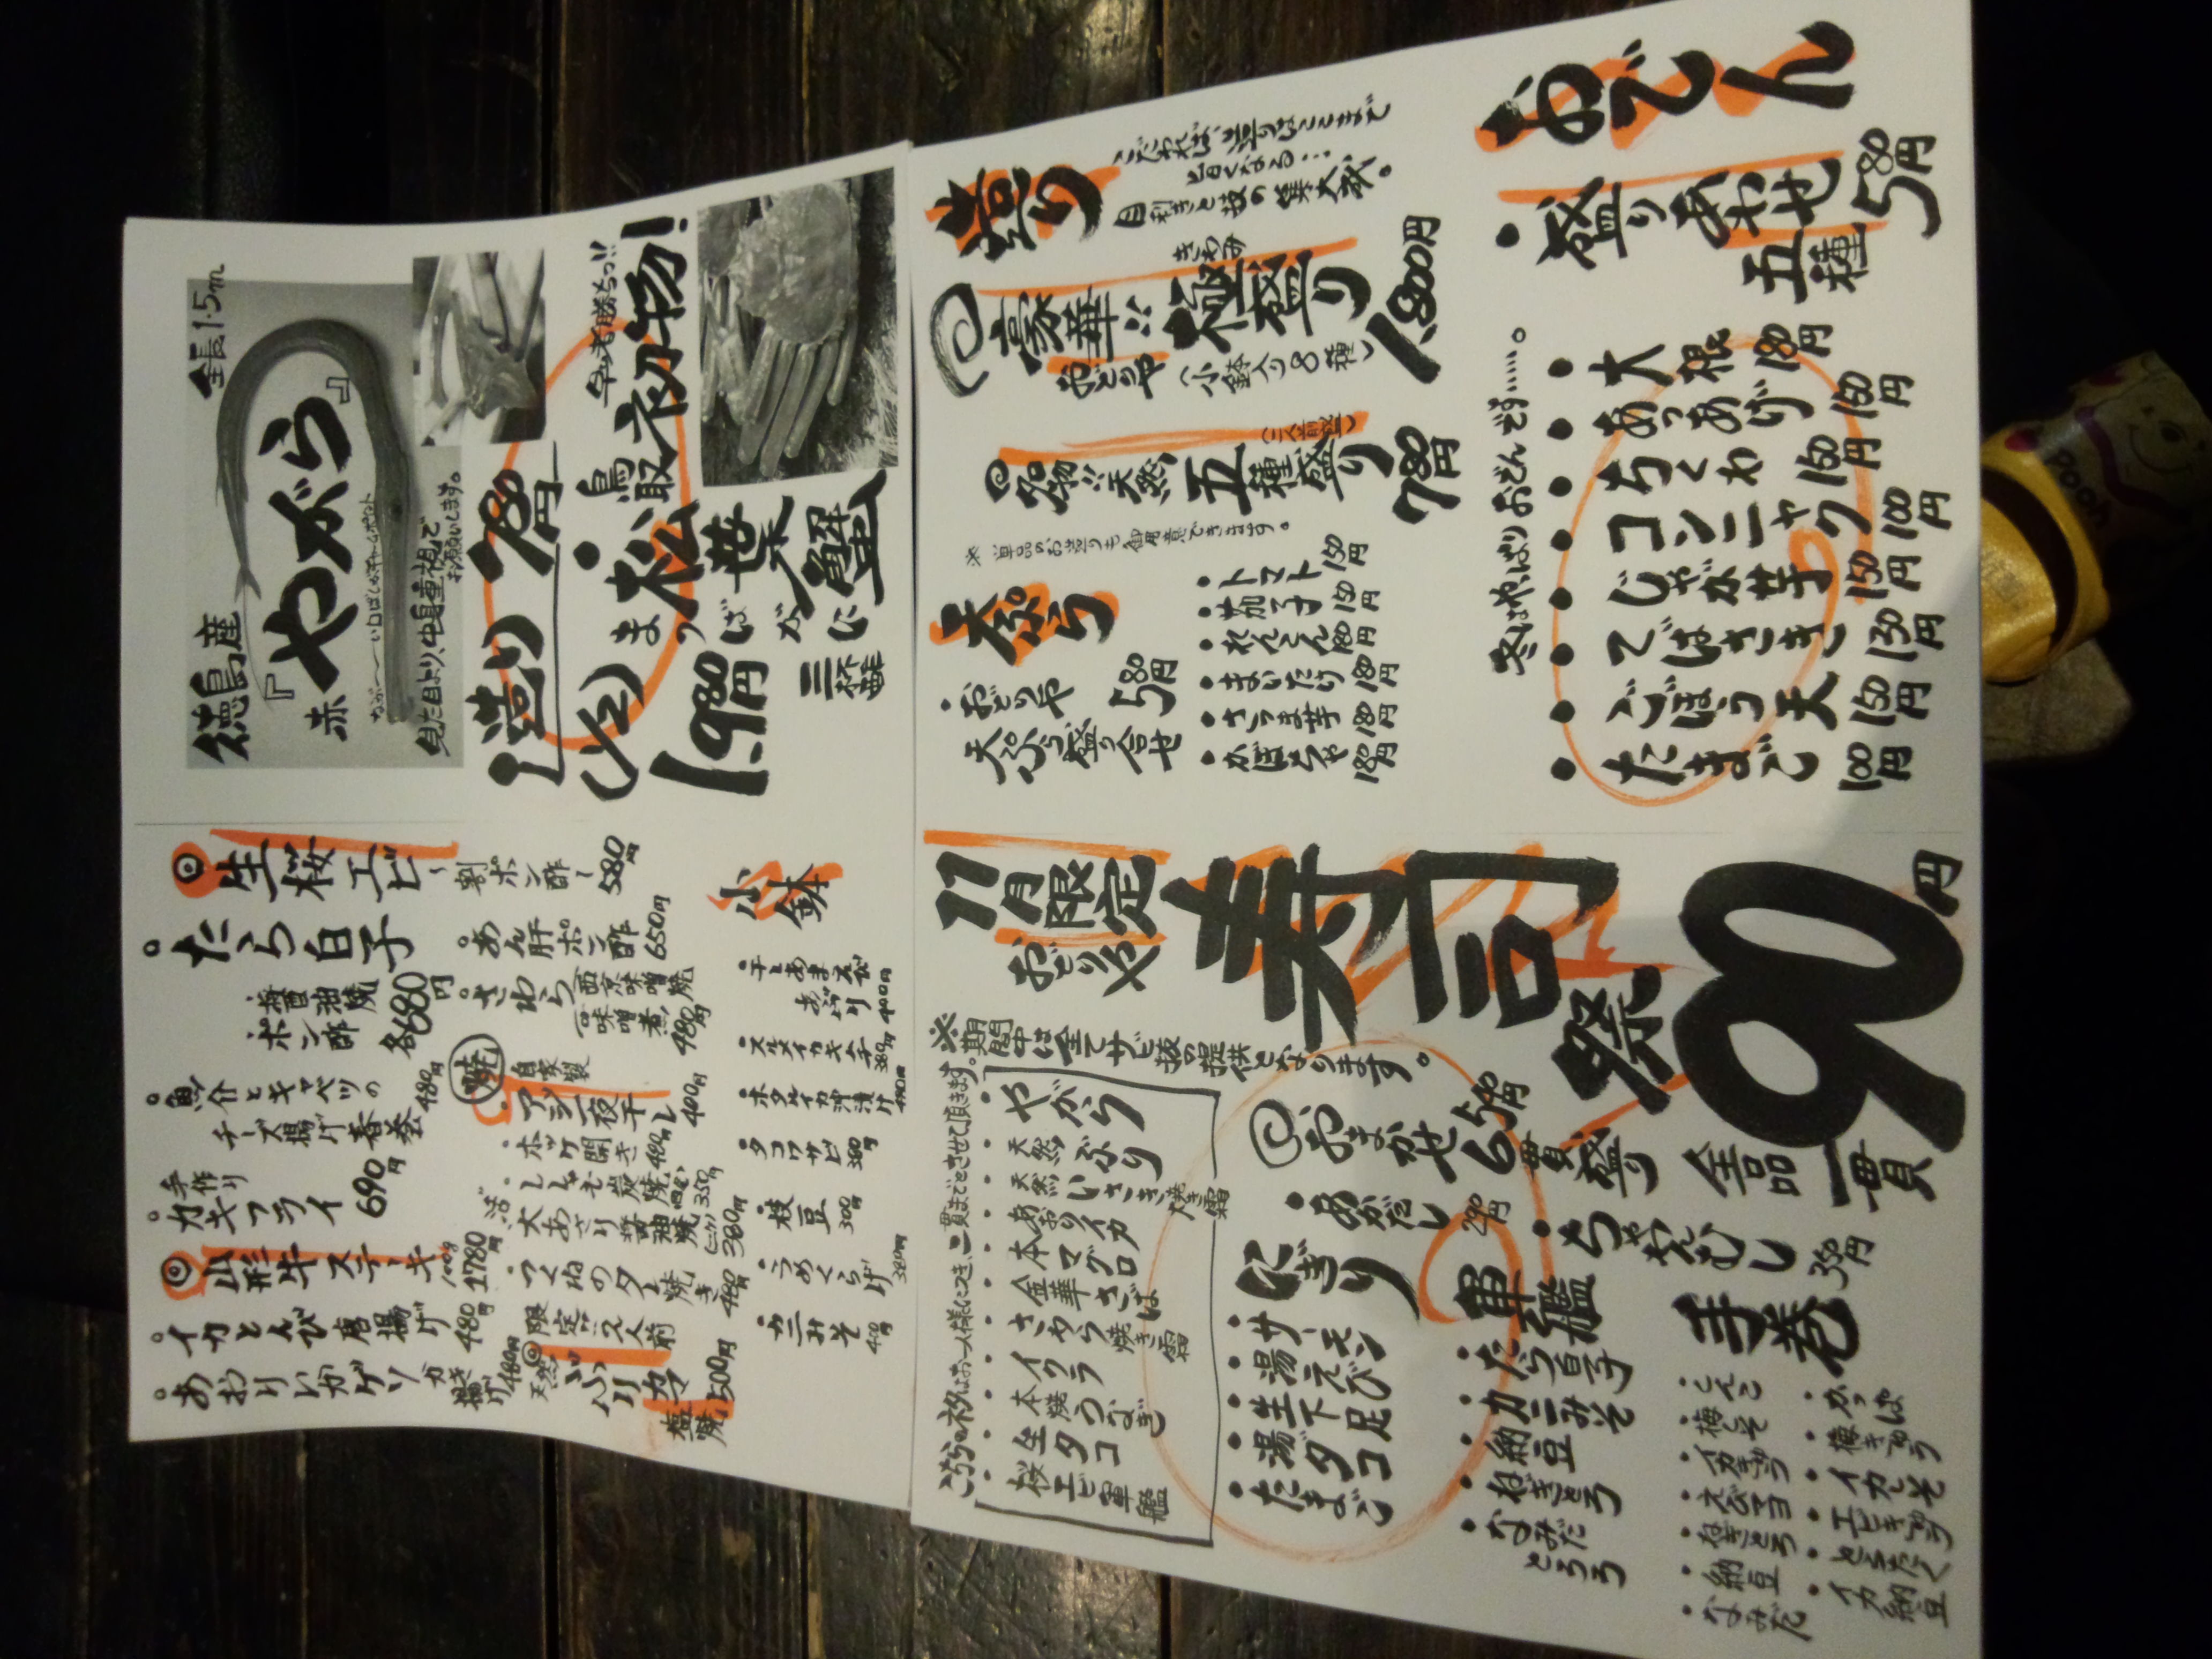 徳島産
全長1.5m
赤『やがら』
見た目より、中身重視で
お願いします。
造り 780円
早い者勝ちっ!!
鳥取初物!
松葉蟹
まっばがに
(1/2)
1,980円
三杯酢
◎生桜エビ
割ポン酢
580円
たら白子
醤油焼
ポン酢
各680円
魚介とキャベツの
チーズ揚げ春巻 480円
手作り
カキフライ 690円
◎山形牛ステーキ
100g 1780円
イカとんび唐揚げ 480円
あおりいかゲソ
かき揚げ 480円
あん肝ポン酢 650円
さわら 西京味噌焼
味噌煮 480円
焼
自家製
アジ一夜干し 400円
ホッケ開き 480円
ししゃも炭焼 350円
活 大あさり醤油焼 380円
つくねのタレ焼き 480円
限定
天然ぶりカマ
塩焼 500円
小鉢
干しあまえび
あぶり 400円
スルメイカキムチ 380円
ホタルイカ沖漬け
タコワサビ 380円
枝豆 300円
うめくらげ 380円
カニみそ
造り
こだわれば、造りはここまで
旨くなる…
目利きと技の集大成。
豪華!! 極盛り
きわみ
おどりや (小鉢入り8種)
1,800円
名物!! 天然 五種盛り
(一人前盛)
780円
※単品のお造りも御用意できます。
天ぷら
・おどりや
天ぷら盛り合せ 580円
・トマト 150円
・茄子 150円
・れんこん 180円
・まいたけ 180円
・さつま芋 180円
・かぼちゃ 180円
おでん
・盛りあわせ
五種 580円
冬はやっぱりおでんです……。
・大根 180円
・あつあげ 150円
・ちくわ 150円
・コンニャク 100円
・じゃが芋 150円
・てばさき 150円
・ごぼう天 150円
・たまご 100円
11月限定
おどりや
寿司祭
90円
全品一貫
※期間中は全てサビ抜の提供となります。
こちらのネタはお一人様につき、二貫までとさせて頂きます。
・やがら
・天然ぶり
・天然いさき焼き霜
・あおりイカ
・本マグロ
・金華さば
・さわら焼き霜
・イクラ
・本焼うなぎ
・生タコ
・桜エビ軍艦
おまかせ6貫盛り 580円
・あかだし 290円
・ちゃわんむし 350円
にぎり
・サーモン
・湯えび
・生下足
・湯ダコ
・たまご
軍艦
・たら白子
・カニみそ
・納豆
・ねぎとろ
・なみだとろろ
手巻
・しんこ
・梅しそ
・イカきゅう
・えびマヨ
・ねぎとろ
・納豆
・なみだ
・かっぱ
・梅きゅう
・イカしそ
・エビきゅう
・とろたく
・イカ納豆
Pooh